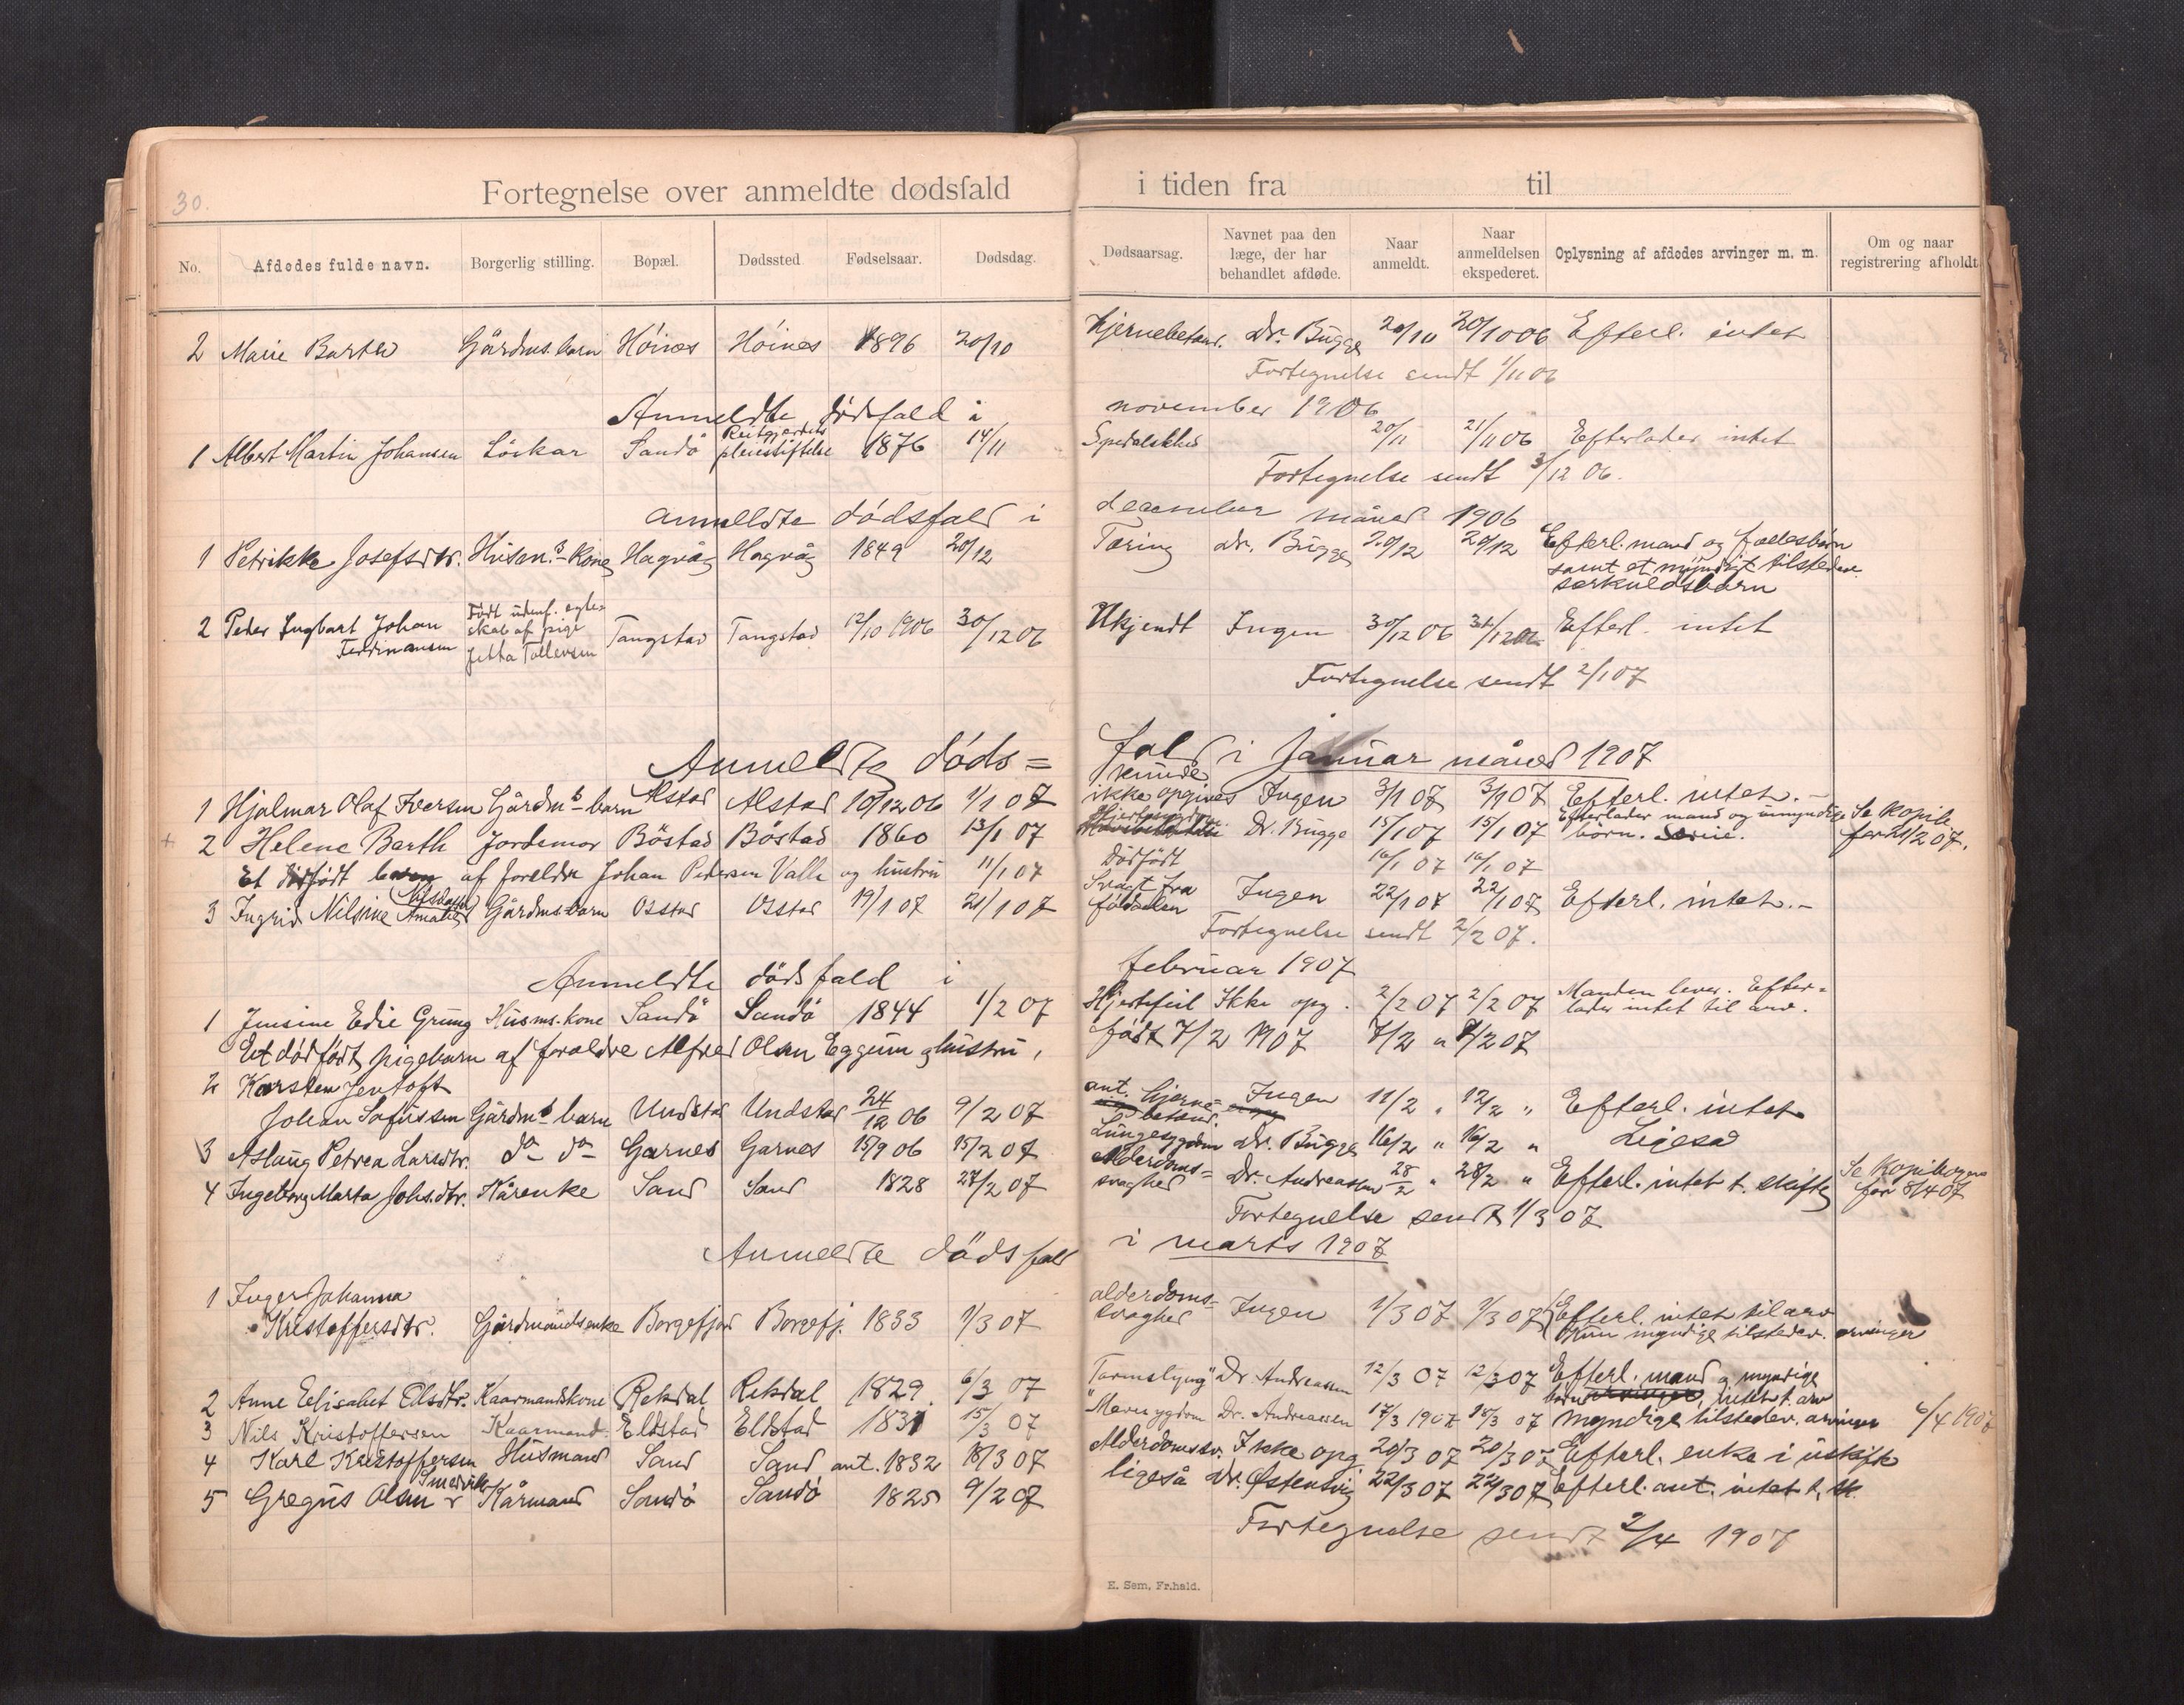 30.
Fortegnelse over anmeldte dødsfald i tiden fra til
No. Afdødes fulde navn. Borgerlig stilling. Bopæl. Dødssted Fødselsaar. Dødsdag. Dødsaarsag. Navnet paa den læge, der har behandlet afdøde. Naar anmeldt. Naar anmeldelsen ekspederet. Oplysning af afdødes arvinger m. m. Om og naar registrering afholdt.
2 Marie Barth Gårdms. barn Höines Höines 1896 20/10 Hjernebetænd. Dr. Bugge 20/10 20/10 06 Efterl. intet
Fortegnelse sendt 1/11 06
Anmeldte dödsfald i november 1906
1 Albert Martin Johansen Löskar Sandö Reitgjerdets pleiestiftelse 1876 14/11 Spedalskhed 20/11 21/11 06 Efterlader intet
Fortegnelse sendt 3/12 06.
anmeldte dödsfald i december måned 1906
1 Petrikke Josefsdtr. Husm.s kone Hagvåg Hagvåg 1849 20/12 Tæring dr. Bugge 20/12 20/12 Efterl. mand og fællesbörn
samt et myndigt tilstedev.
særkuldsbarn
2 Peder Ingbart Johan
Ferdinansen Födt udenf. egte-
skab af pige
Jetta Tollevsen Tangstad Tangstad 12/10 1906 30/12 06 Ukjendt Ingen 30/12 06 31/12 06 Efterl. intet
Fortegnelse sendt 2/1 07
Anmeldte döds= fald i januar måned 1907
1 Hjalmar Olaf Iversen Gårdm.s barn Alstad Alstad 10/12 06 1/1 07 kunde
ikke opgives Ingen 3/1 07 3/1 07 Efterl. intet.-
2 Helene Barth Jordemor Böstad Böstad 1860 13/1 07 Hjertesygdom Dr. Bugge 15/1 07 15/1 07 Efterlader mand og umyndige
börn. Se kopib.
for 21/2 07.
Et dödfödt barn af foreldre Johan Pedersen Valle og hustru 11/1 07 Dödfödt 16/1 07 16/1 07
3 Ingrid Nilsine Amalie Nilsdatter Gårdmsbarn Ostad Ostad 19/1 07 21/1 07 Svagt fra
födselen Ingen 22/1 07 22/1 07 Efterl. intet.-
Fortegnelse sendt 2/2 07.
Anmeldte dödsfald i februar 1907
1 Jensine Edie Grung Husms. kone Sandö Sandö 1844 1/2 07 Hjertefeil Ikke opg. 2/2 07 2/2 07 Manden lever. Efter=
lader intet til arv.
Et dödfödt pigebarn af foreldre Alfred Olsen Eggum og hustru, födt 7/2 1907 7/2 " 7/2 07
2 Karsten Jentoft
Johan Sofussen Gårdm.s barn Undstad Undstad 24/12 06 9/2 07 ant. hjerne=
betænd. Ingen 11/2 " 12/2 " Efterl. intet
3 Aslaug Petrea Larsdtr. do do Garnes Garnes 15/9 06 15/2 07 Lungesygdom Dr. Bugge 16/2 " 16/2 " Ligeså
4 Ingeborg Marta Johs.dtr. Kårenke Sand Sand 1828 27/2 07 Alderdoms=
svaghed Dr. Andreassen 28/2 " 28/2 " Efterl. intet t. skifte Se Kopibogen
for 8/4 07
Fortegnelse sendt 1/3 07
Anmeldte dödsfald i marts 1907
1 Inger Johanna
Kristoffersdtr. Gårdmandsenke Borgefjord Borgefj. 1833 1/3 07 alderdoms=
svaghed Ingen 1/3 07 1/3 07 Efterl. intet til arv
Kun myndige tilstedev. arvinger
2 Anne Eelisabet Olsdtr. Kaarmandskone Rekdal Rekdal 1829. 6/3 07 Tarmslyng Dr. Andreassen 12/3 07 12/3 07 Efterl. mand og myndige
börn, intet t. arv
3 Nils Kristoffersen Kaarmand Eldstad Eldstad 1831 15/3 07 Mavesygdom Dr. Andreassen 17/3 1907 18/3 07 myndige tilstedev. arvinger 6/4 1907
4 Karl Kristoffersen Husmand Sand Sand ant. 1832 18/3 07 Alderdomssv. Ikke opg 20/3 07 20/3 07 Efterl. enke i uskifte
5 Gregus Olsen Smedvik Kårmand Sandö Sandö 1825 9/2 07 ligeså dr. Østensvig 22/3 07 22/3 07 Efterl. ant. intet t. sk.
Fortegnelse sendt 2/4 1907
E. Sem, Fr.hald.